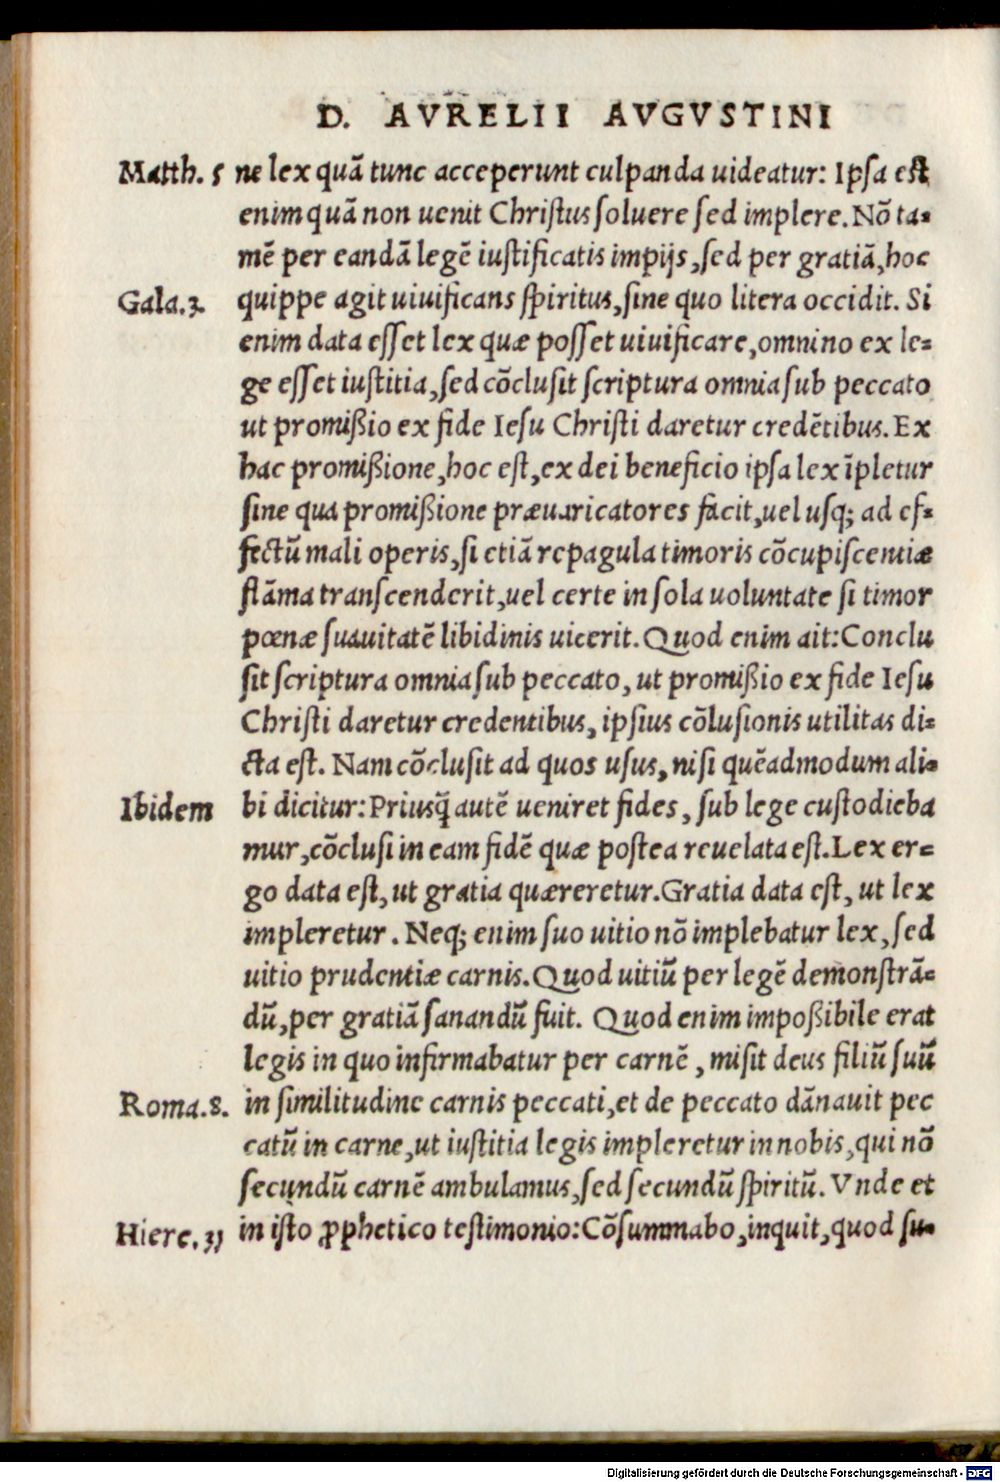 D. AVRELII AVGVSTINI
Matth. 5 ne lex quā tunc acceperunt culpanda uideatur: Ipsa est
enim quā non uenit Christus soluere sed implere. Nō ta-
mē per eandā legē iustificatis impijs, sed per gratiā, hoc
Gala. 3. quippe agit uiuificans spiritus, sine quo litera occidit. Si
enim data esset lex quæ posset uiuificare, omnino ex le-
ge esset iustitia, sed cōclusit scriptura omnia sub peccato
ut promißio ex fide Iesu Christi daretur credētibus. Ex
hac promißione, hoc est, ex dei beneficio ipsa lex īpletur
sine qua promißione præuaricatores facit, uel usq; ad ef-
fectū mali operis, si etiā repagula timoris cōcupiscentiæ
flāma transcenderit, uel certe in sola uoluntate si timor
pœnæ suauitatē libidinis uicerit. Quod enim ait: Conclu
sit scriptura omnia sub peccato, ut promißio ex fide Iesu
Christi daretur credentibus, ipsius cōlusionis utilitas di-
cta est. Nam cōclusit ad quos usus, nisi quēadmodum ali-
Ibidem bi dicitur: Priusq̄ autē ueniret fides, sub lege custodieba
mur, cōclusi in eam fidē quæ postea reuelata est. Lex er-
go data est, ut gratia quæreretur. Gratia data est, ut lex
impleretur. Neq; enim suo uitio nō implebatur lex, sed
uitio prudentiæ carnis. Quod uitiū per legē demonstrā-
dū, per gratiā sanandū fuit. Quod enim impoßibile erat
legis in quo infirmabatur per carnē, misit deus filiū suū
Roma. 8. in similitudine carnis peccati, et de peccato dānauit pec
catū in carne, ut iustitia legis impleretur in nobis, qui nō
secundū carnē ambulamus, sed secundū spiritū. Vnde et
Hiere. 31 in isto ꝓphetico testimonio: Cōsummabo, inquit, quod su-
Digitalisierung gefördert durch die Deutsche Forschungsgemeinschaft - DFG